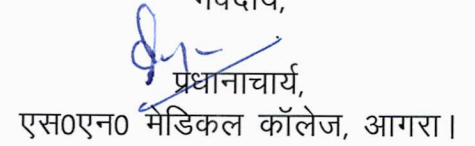 भवदीय,
प्रधानाचार्य,
एस0एन0 मेडिकल कॉलेज, आगरा।